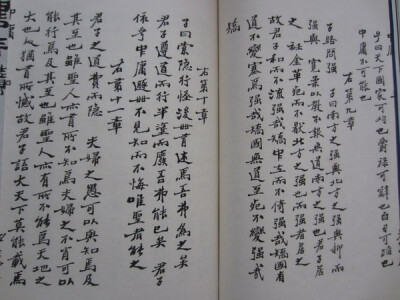 子曰天下國家可均也爵祿可辭也白刃可蹈也
中庸不可能也
右第九章
子路問強子曰南方之強與北方之強與抑而
強與寬柔以教不報無道南方之強也君子居
之衽金革死而不厭北方之強也而強者居之
故君子和而不流強哉矯中立而不倚強哉矯國有
道不變塞焉強哉矯國無道至死不變強哉
矯
右第十章
子曰素隱行怪後世有述焉吾弗為之矣
君子遵道而行半塗而廢吾弗能已矣君子
依乎中庸遯世不見知而不悔唯聖者能之
右第十一章
君子之道費而隱 夫婦之愚可以與知焉及
其至也雖聖人亦有所不知焉夫婦之不肖可以
能行焉及其至也雖聖人亦有所不能焉天地之
大也人猶有所憾故君子語大天下莫能載焉